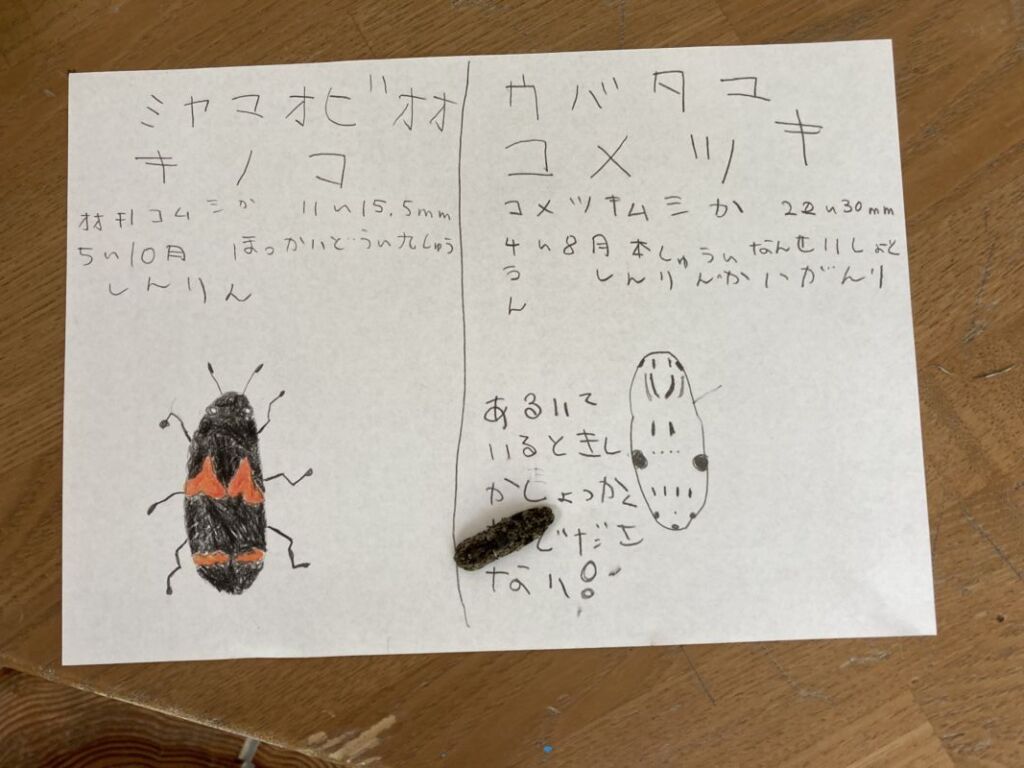 ミヤマオビオオ
キノコ
オオキノコムシか 11い15.5mm
5い10月 ほっかいどうい九しゅう
しんりん
ウバタマ
コメツキ
コメツキムシか 22い30mm
4い8月 本しゅうい なんせいしょと
う しんりんかいがんり
ん
あるいて
いるときし
かしょっかく
なり!